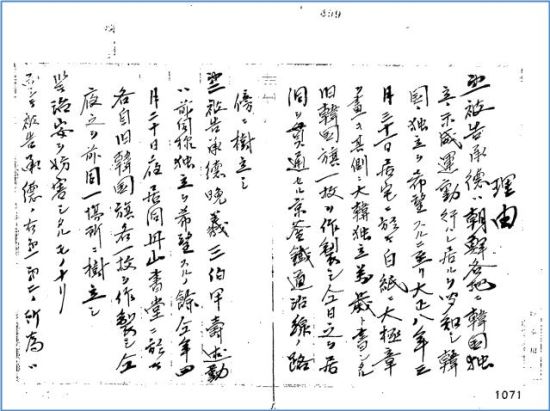 理由
第一被告承德ハ朝鮮各地ニ韓国独
立ノ示威運動行ハレ居ルヲ聞知シ韓
国独立ヲ希望スルニ至リ大正八年三
月三十一日居宅ニ於テ白紙ニ太極章
ヲ畫キ其側ニ大韓独立萬歳ト書シタル
旧韓国旗一枚ヲ作製シ仝日之ヲ居
洞ヲ貫通セル京釜鐵道沿線ノ路
傍ニ樹立シ
第二被告承德晩義三伯罕壽忠勤
ハ前同様独立ヲ希望スルノ餘仝年四
月二十日夜居同丹山書堂ニ於テ
各自旧韓国旗各一枚ヲ作製シ仝
夜之ヲ前同一場所ニ樹立シ
治安ヲ妨害シタルモノナリ
被告承德ノ右第一第二ノ所為ハ
1071